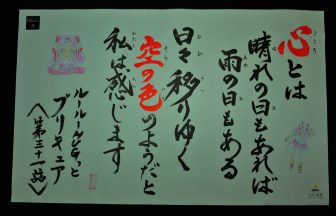 心とは
晴れの日もあれば
雨の日もある
日々移りゆく
空の色のようだと
私は感じます
ルールールとっと
プリキュア
〈第三十一話〉